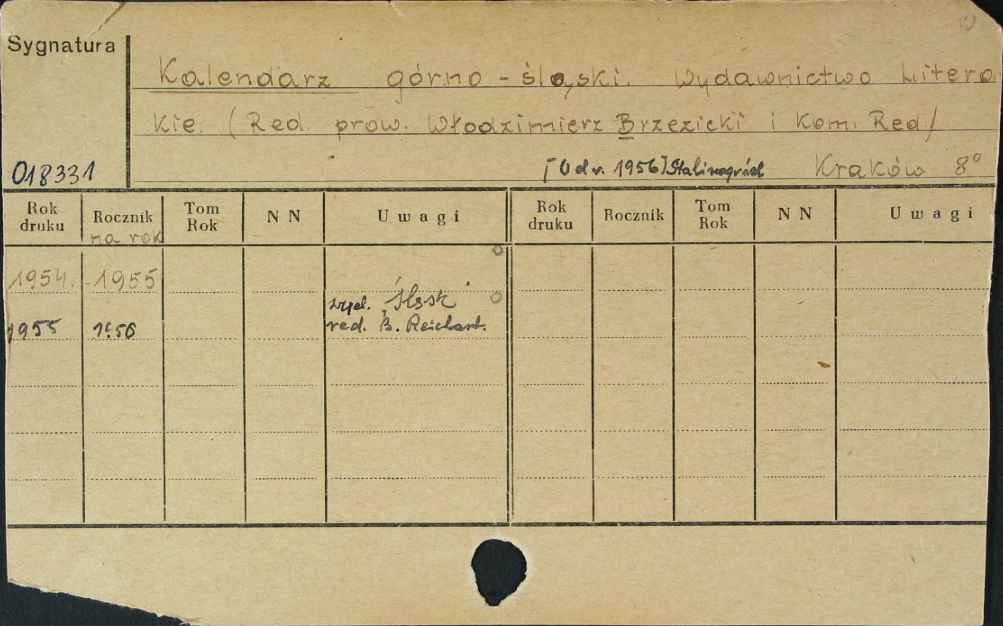 Sygnatura
Kalendarz górno-śląski. Wydawnictwo Litera
kie. (Red. prow. Włodzimierz Brzezicki i Kom. Red/
018331 [Od r. 1956] Stalinogród Kraków 8°
Rok druku Rocznik Tom Rok N N Uwagi Rok druku Rocznik Tom Rok N N Uwagi
na rok
1954. 1955
"Śląsk"
1955 1956 red. B. Reichart.